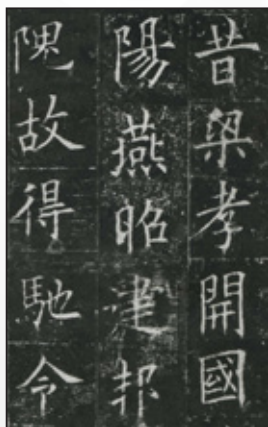 昔梁孝開國
陽燕昭建邦
隗故得馳令